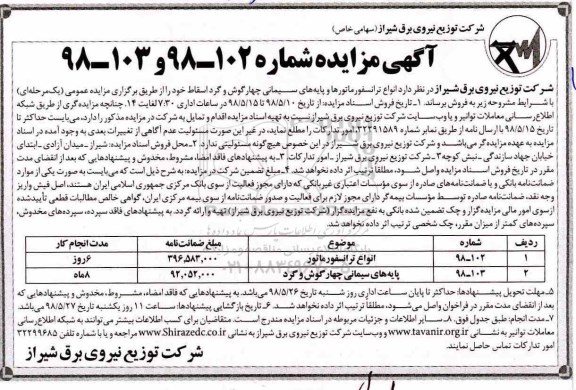 شرکت توزیع نیروی برق شیراز (سهامی خاص)
آگهی مزایده شماره ۱۰۲-۹۸ و ۱۰۳-۹۸
شرکت توزیع نیروی برق شیراز در نظر دارد انواع ترانسفورماتورها و پایه‌های سیمانی چهارگوش و گرد اسقاط خود را از طریق برگزاری مزایده عمومی (یک‌مرحله‌ای)
با شرایط مشروحه زیر به فروش برساند. ۱- تاریخ فروش اسناد مزایده: از تاریخ ۹۸/۵/۱۰ تا ۹۸/۵/۱۵ در ساعات اداری ۷:۳۰ لغایت ۱۴. چنانچه مزایده‌گری از طریق شبکه
اطلاع‌رسانی معاملات توانیر و یا وب‌سایت شرکت توزیع نیروی برق شیراز نسبت به تهیه اسناد مزایده اقدام و تمایل به شرکت در مزایده مذکور را دارد، می‌بایست حداکثر تا
تاریخ ۹۸/۵/۱۵ با ارسال نامه از طریق نمابر شماره ۳۲۲۹۱۵۸۹، امور تدارکات را مطلع نماید، در غیر این صورت مسئولیت عدم آگاهی از تغییرات بعدی به وجود آمده در اسناد
مزایده به عهده مزایده‌گر می‌باشد و شرکت توزیع نیروی برق شیراز در این خصوص هیچ‌گونه مسئولیتی ندارد. ۲- محل فروش اسناد مزایده: شیراز - میدان آزادی - ابتدای
خیابان جهاد سازندگی - نبش کوچه ۳ - شرکت توزیع نیروی برق شیراز - امور تدارکات. ۳- به پیشنهادهای فاقد امضاء، مشروط، مخدوش و پیشنهادهایی که بعد از انقضای مدت
مقرر در تاریخ فروش اسناد مزایده واصل شود، مطلقاً ترتیب اثر داده نخواهد شد. ۴- مبلغ تضمین شرکت در مزایده: به شرح ذیل است که می‌بایست به صورت یکی از موارد
ضمانت‌نامه بانکی و یا ضمانت‌نامه‌های صادره از سوی مؤسسات اعتباری غیربانکی که دارای مجوز فعالیت از سوی بانک مرکزی جمهوری اسلامی ایران هستند، اصل فیش واریز
وجه نقد، ضمانت‌نامه صادره توسط مؤسسات بیمه‌گر دارای مجوز لازم برای فعالیت و صدور ضمانت‌نامه از سوی بیمه مرکزی ایران، گواهی خالص مطالبات قطعی تأییدشده
ازسوی امور مالی مزایده‌گزار و چک تضمین شده بانکی به نفع مزایده‌گزار (شرکت توزیع نیروی برق شیراز) تهیه و ارائه گردد. به پیشنهادهای فاقد سپرده، سپرده‌های مخدوش،
سپرده‌های کمتر از میزان مقرر، چک شخصی ترتیب اثر داده نخواهد شد.
ردیف شماره موضوع مبلغ ضمانت‌نامه مدت انجام کار
۱ ۱۰۲-۹۸ انواع ترانسفورماتور ۳۹۶,۵۸۳,۰۰۰ ۶روز
۲ ۱۰۳-۹۸ پایه‌های سیمانی چهارگوش و گرد ۹۲,۰۵۲,۰۰۰ ۸ماه
۵- مهلت تحویل پیشنهادها: حداکثر تا پایان ساعت اداری روز شنبه تاریخ ۹۸/۵/۲۶ می‌باشد. به پیشنهادهایی که فاقد امضاء، مشروط، مخدوش و پیشنهادهایی که
بعد از انقضای مدت مقرر در فراخوان واصل می‌شود، مطلقاً ترتیب اثر داده نخواهد شد. ۶- تاریخ بازگشایی پیشنهادها: ساعت ۱۱ روز یکشنبه تاریخ ۹۸/۵/۲۷ می‌باشد.
۷- مدت انجام: طبق جدول فوق. ۸- سایر اطلاعات و جزئیات مربوطه در اسناد مزایده مندرج است. متقاضیان برای کسب اطلاعات بیشتر می‌توانند به شبکه اطلاع‌رسانی
معاملات توانیر به نشانی www.tavanir.org.ir و وب‌سایت شرکت توزیع نیروی برق شیراز به نشانی www.Shirazedc.co.ir مراجعه و یا با شماره تلفن ۳۲۲۹۹۶۸۵
امور تدارکات تماس حاصل نمایند.
شرکت توزیع نیروی برق شیراز